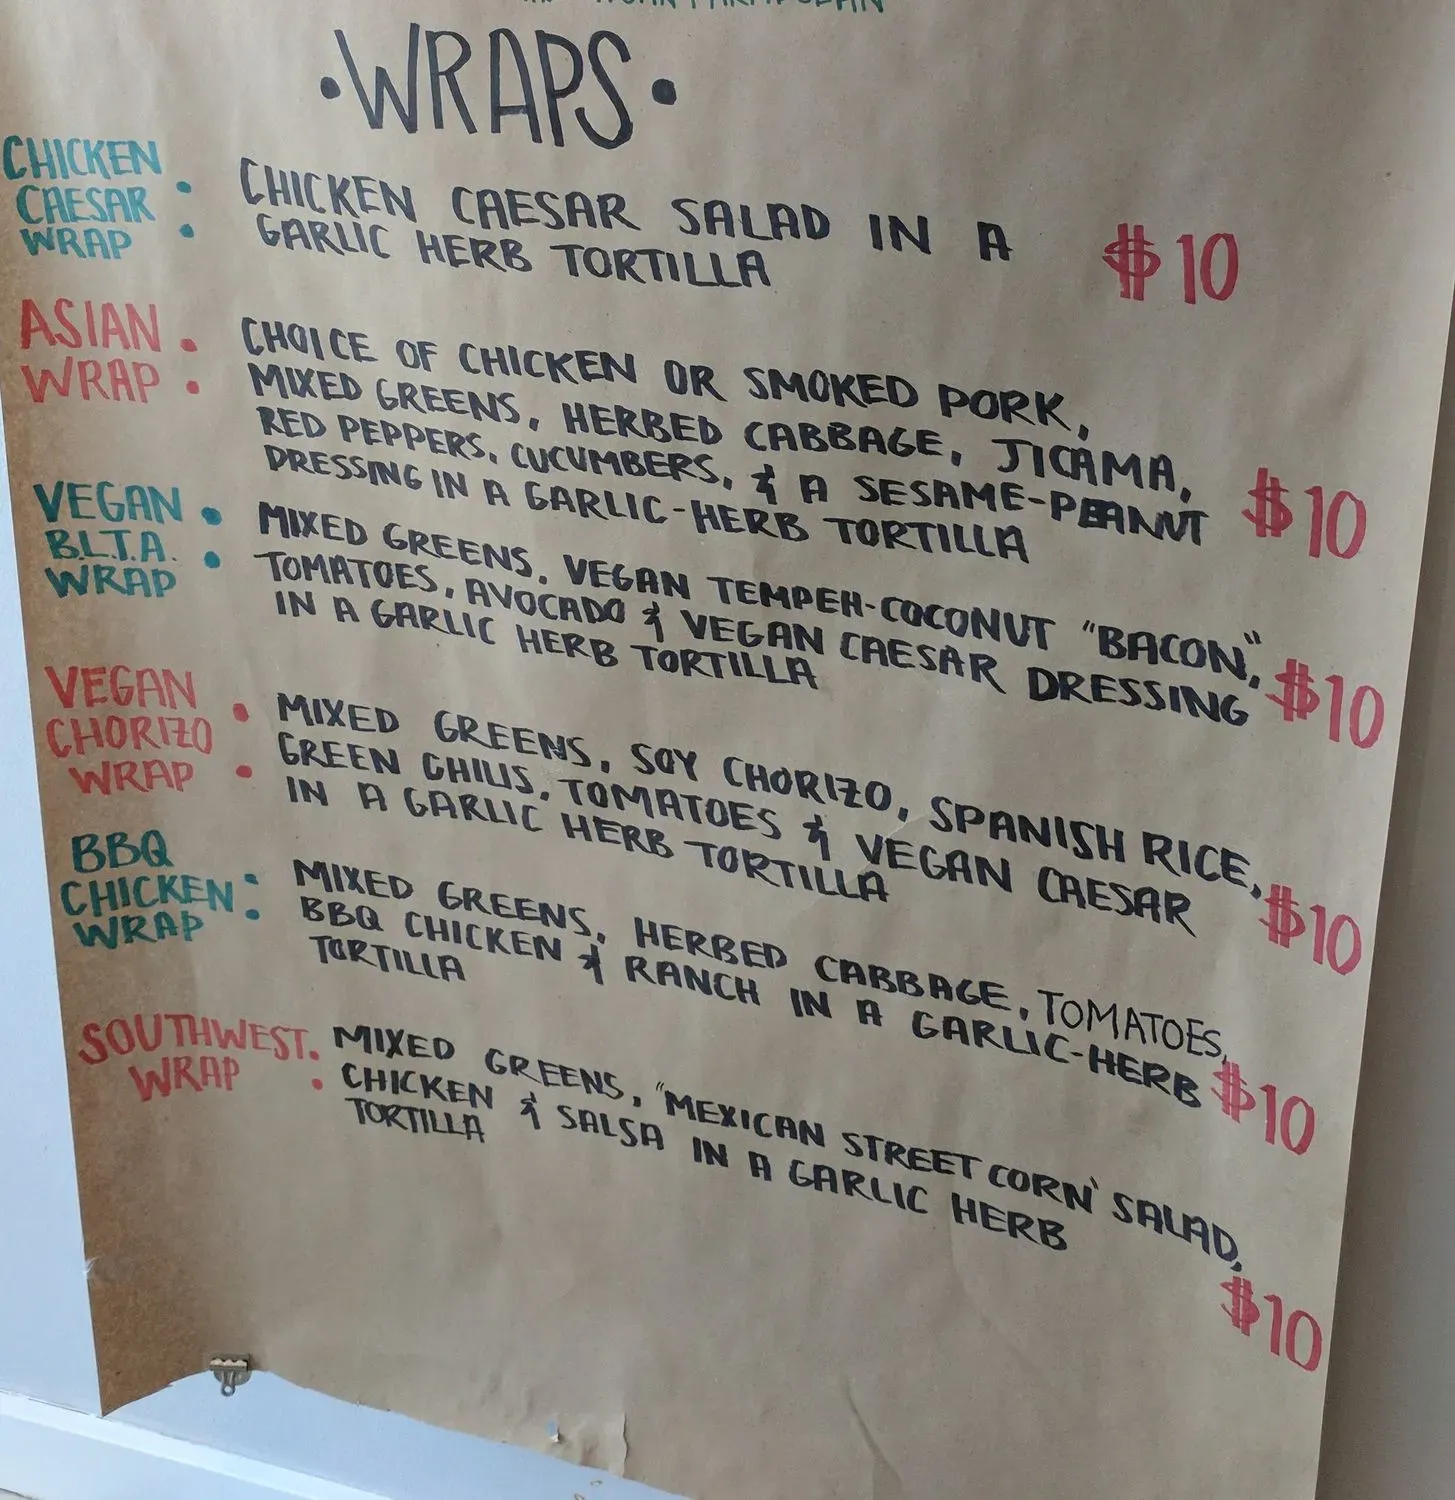 •WRAPS•
CHICKEN
CAESAR
WRAP :
CHICKEN CAESAR SALAD IN A
GARLIC HERB TORTILLA
$10
ASIAN
WRAP :
CHOICE OF CHICKEN OR SMOKED PORK,
MIXED GREENS, HERBED CABBAGE, JICAMA,
RED PEPPERS, CUCUMBERS, & A SESAME-PEANUT
DRESSING IN A GARLIC-HERB TORTILLA
$10
VEGAN
B.L.T.A.
WRAP :
MIXED GREENS, VEGAN TEMPEH-COCONUT "BACON",
TOMATOES, AVOCADO & VEGAN CAESAR DRESSING
IN A GARLIC HERB TORTILLA
$10
VEGAN
CHORIZO
WRAP :
MIXED GREENS, SOY CHORIZO, SPANISH RICE,
GREEN CHILIS, TOMATOES & VEGAN CAESAR
IN A GARLIC HERB TORTILLA
$10
BBQ
CHICKEN :
WRAP
MIXED GREENS, HERBED CABBAGE, TOMATOES,
BBQ CHICKEN & RANCH IN A GARLIC-HERB
TORTILLA
$10
SOUTHWEST
WRAP :
MIXED GREENS, "MEXICAN STREET CORN' SALAD,
CHICKEN & SALSA IN A GARLIC HERB
TORTILLA
$10